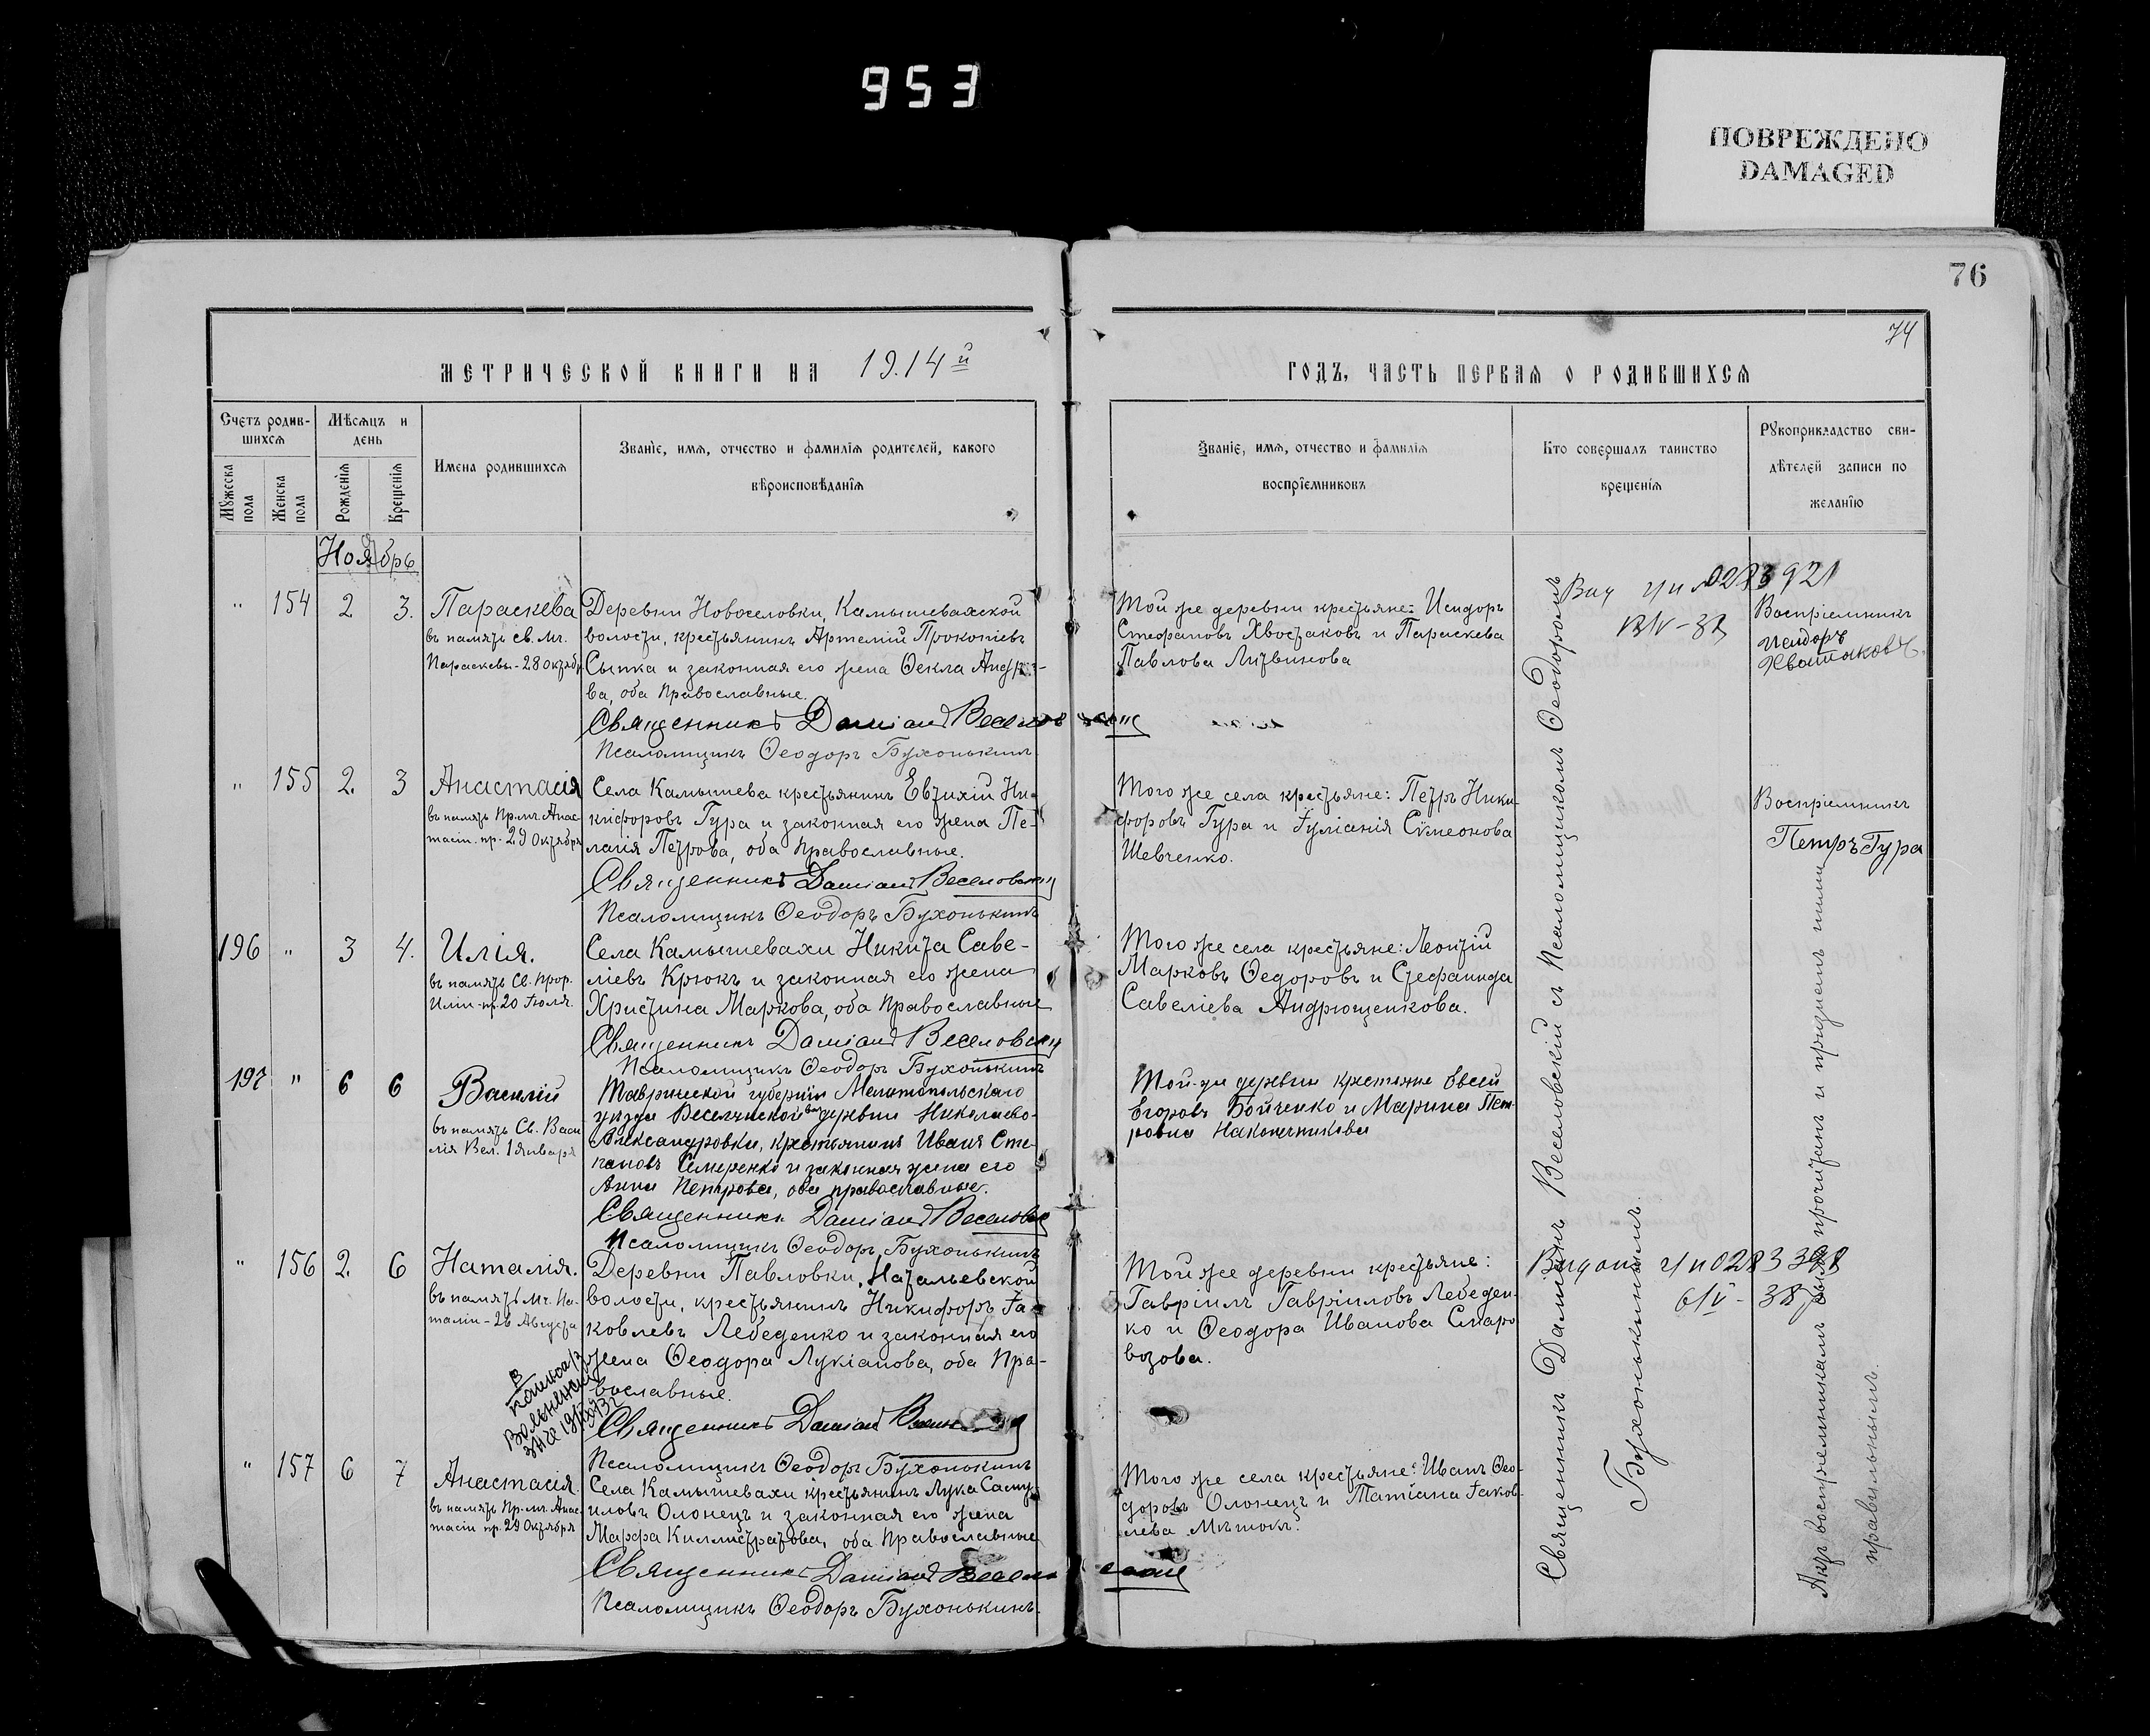 953
ПОВРЕЖДЕНО
DAMAGED
76
74
МЕТРИЧЕСКОЙ КНИГИ НА 1914й
ГОДЪ, ЧАСТЬ ПЕРВАЯ О РОДИВШИХСЯ
Счетъ родив-
шихся
Мѣсяцъ и
день
Мужеска
пола
Женска
пола
Рожденія
Крещенія
Имена родившихся
Званіе, имя, отчество и фамилія родителей, какого
вѣроисповѣданія
Званіе, имя, отчество и фамилія
воспріемниковъ
Кто совершалъ таинство
крещенія
Рукоприкладство сви-
дѣтелей записи по
желанію
Ноябрь
" 154 2 3. Параскева
въ память св. мч.
Параскевы - 28 октябр
Деревни Новоселовки, Камышевахской
волости, крестьянинъ Артемій Прокопіевъ
Сытка и законная его жена Ѳекла
ва, оба православные.
Священникъ Даміанъ
Псаломщикъ Ѳеодоръ Бухонькинъ
Той же деревни крестьяне: Исидоръ
Стефановъ Хвостаковъ и Параскева
Павлова Литвинова
Воспріемникъ
Исидоръ
Хвостаковъ
" 155 2. 3 Анастасія
въ память Пр. мч. Анас-
тасіи - пр. 29 Октября
Села Камышева крестьянинъ Евтихій Ни-
кифоровъ Гура и законная его жена Пе-
лагія Петрова, оба православные.
Священникъ Даміанъ Веселовскій
Псаломщикъ Ѳеодоръ Бухонькинъ
Того же села крестьяне: Петръ Ники-
форовъ Гура и Іуліанія Сѵмеонова
Шевченко.
Воспріемникъ
Петръ Гура
196 " 3 4. Илія.
въ память Св. Прор.
Иліи - пр. 20 Іюля.
Села Камышевахи Никита Саве-
ліевъ Крюкъ и законная его жена
Христина Маркова, оба православные
Священникъ Даміанъ Веселовскій
Псаломщикъ Ѳеодоръ Бухонькинъ
Того же села крестьяне: Леонтій
Марковъ Ѳедоровъ и Стефанида
Савеліева Андрющенкова.
197 " 6 6 Василій
въ память Св. Васи
лія Вел. 1 января
Таврической губерніи Мелитопольскаго
уѣзда деревни Николаево-
Александровки, крестьянинъ Иванъ Сте-
пановъ Семеренко и законная жена его
Анна Петрова, оба православные.
Священникъ Даміанъ Веселовскій
Псаломщикъ Ѳеодоръ Бухонькинъ
Той-же деревни крестьяне Евсей
Егоровъ Бойченко и Марина Пет-
ровна Наконечникова
" 156 2. 6 Наталія.
въ память Мч. На-
таліи - 26 Августа
Деревни Павловки, Натальевской
волости, крестьянинъ Никифоръ Іа-
ковлевъ Лебеденко и законная его
жена Ѳеодора Лукіанова, оба пра-
вославные.
Священникъ Даміанъ
Псаломщикъ Ѳеодоръ Бухонькинъ
Той же деревни крестьяне:
Гавріилъ Гавріиловъ Лебеден-
ко и Ѳеодора Иванова Старо
возова.
" 157 6 7 Анастасія.
въ память Пр. мч. Анас-
тасіи пр. 29 Октября
Села Камышевахи крестьянинъ Лука Саму-
иловъ Олонецъ и законная его жена
Марфа Каллистратова, оба православные
Священникъ Даміанъ
Псаломщикъ Ѳеодоръ Бухонькинъ.
Того же села крестьяне: Иванъ Ѳео-
доровъ Олонецъ и Татіана Іаков-
лева Мѣшокъ.
Священникъ Даміанъ Веселовскій съ Псаломщикомъ Ѳеодоромъ
Бухонькинымъ.
Актъ воспріемникамъ былъ прочитанъ и признанъ ими
правильнымъ.